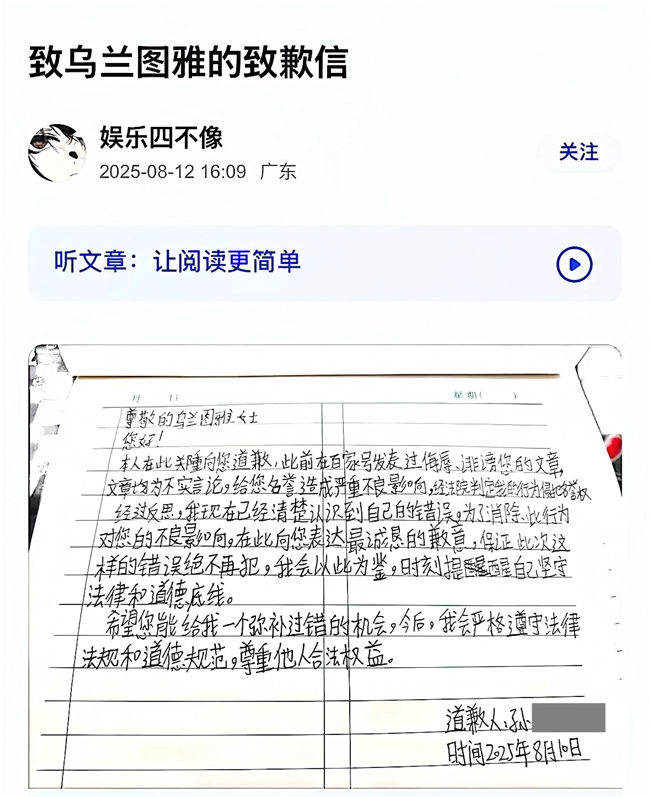 致乌兰图雅的致歉信
娱乐四不像
2025-08-12 16:09 广东
关注
听文章：让阅读更简单
月 日
星期( )
尊敬的乌兰图雅女士
您好！
本人在此关隆向您道歉，此前在百家号发表过侮辱、诽谤您的文章，
文章均为不实言论，给您名誉造成严重不良影响，经法院判定我的行为侵犯名誉权
经过反思，我现在已经清楚认识到自己的错误。为了消除此行为
对您的不良影响，在此向您表达最诚恳的歉意，保证此次这
样的错误绝不再犯，我会以此为鉴，时刻提醒自己坚守
法律和道德底线。
希望您能给我一个弥补过错的机会，今后，我会严格遵守法律
法规和道德规范，尊重他人合法权益。
道歉人：孙
时间2025年8月10日